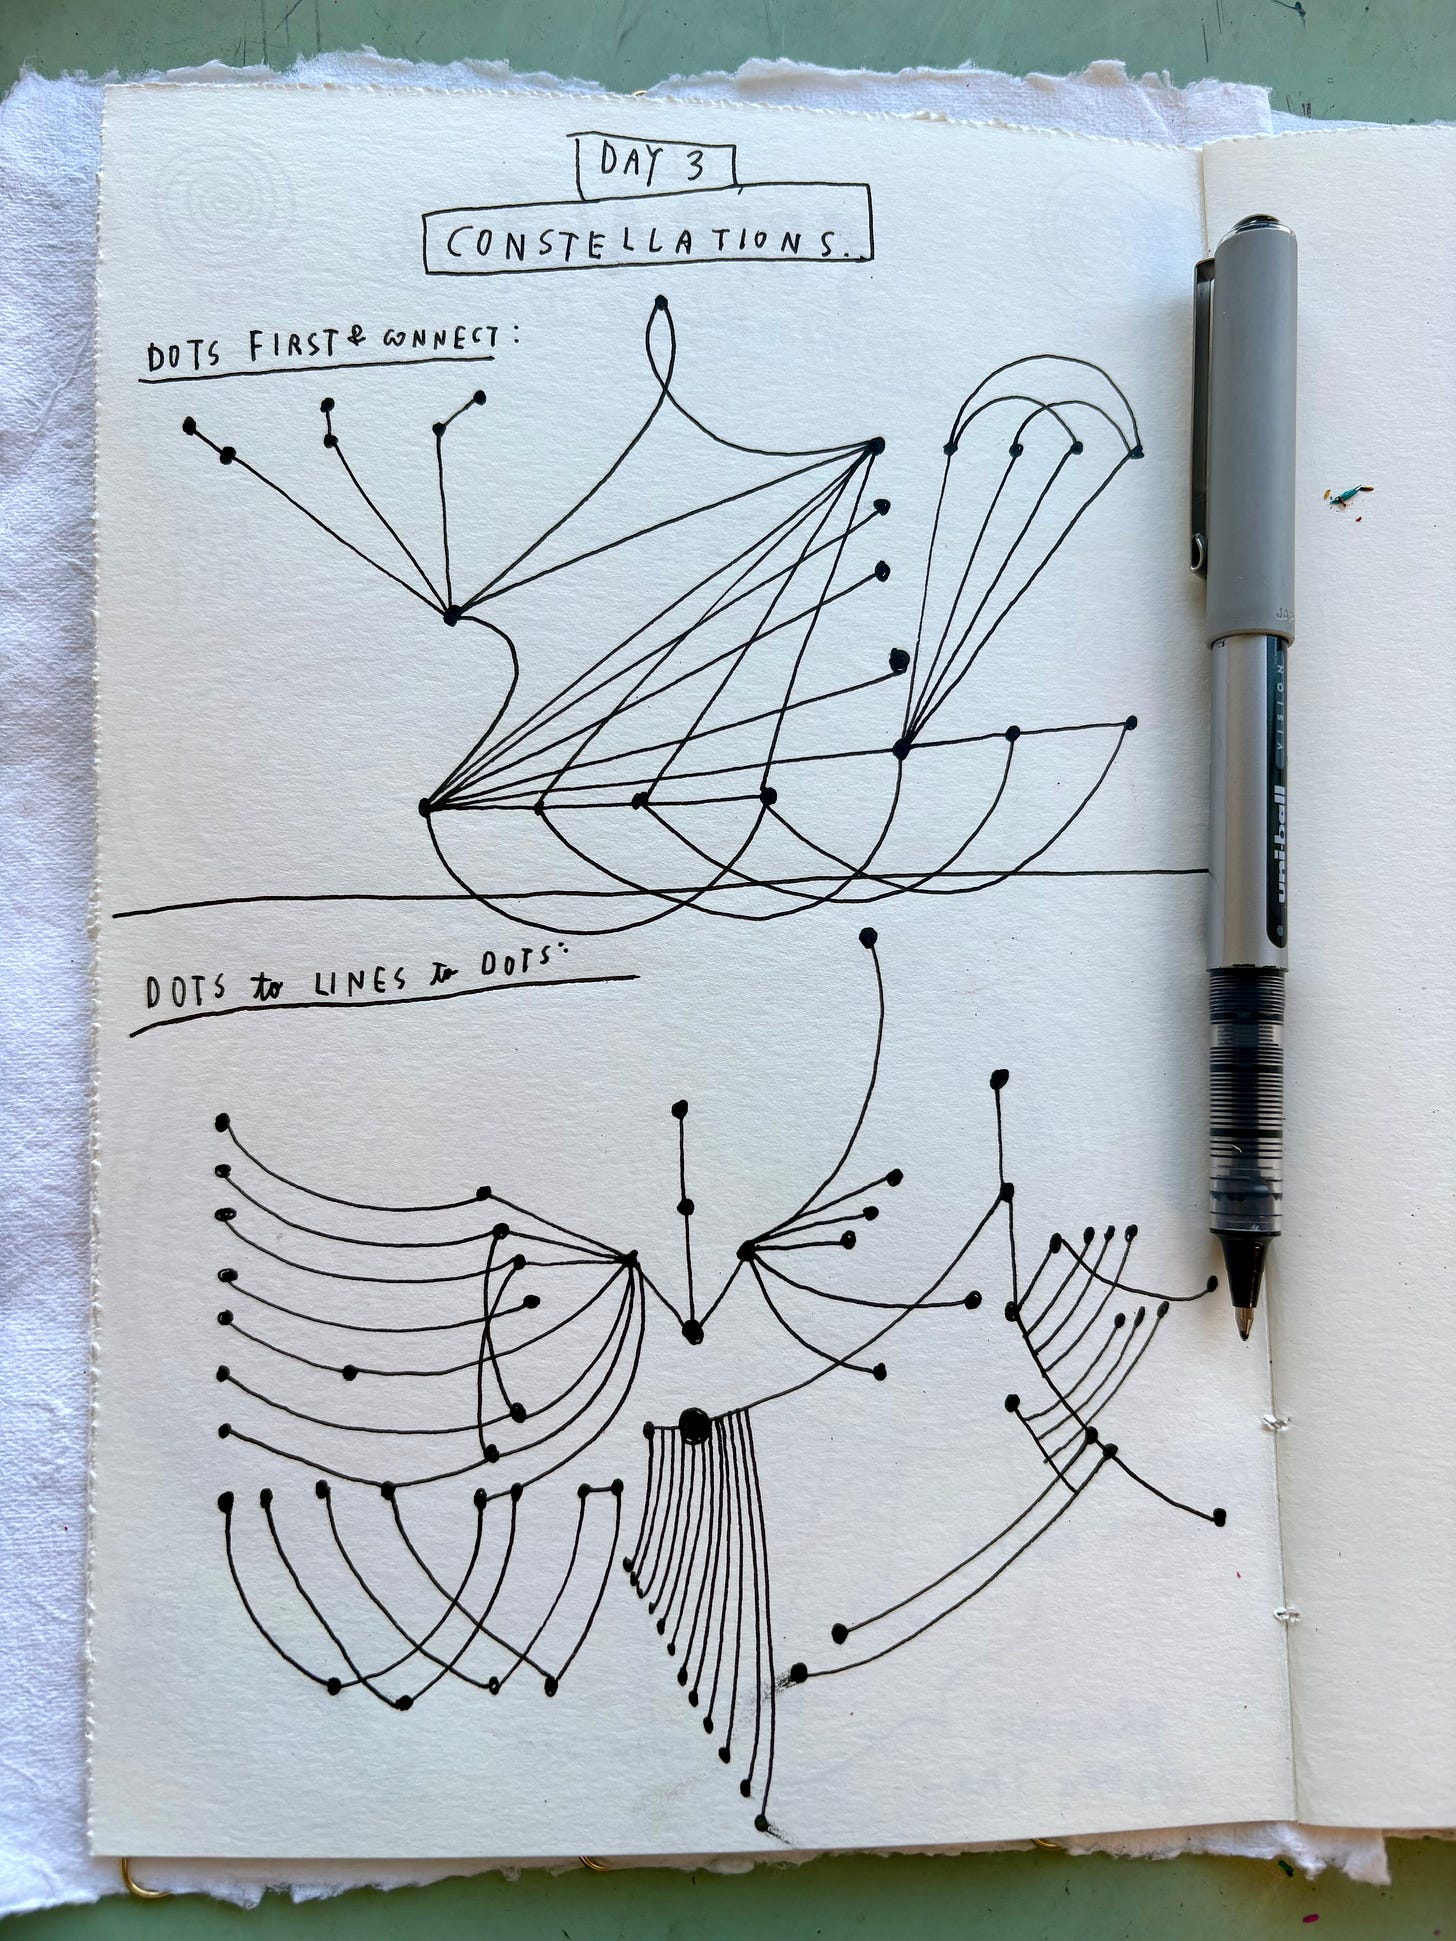 DAY 3
CONSTELLATIONS..
DOTS FIRST & CONNECT:
DOTS to LINES to DOTS:
uni-ball
VISION